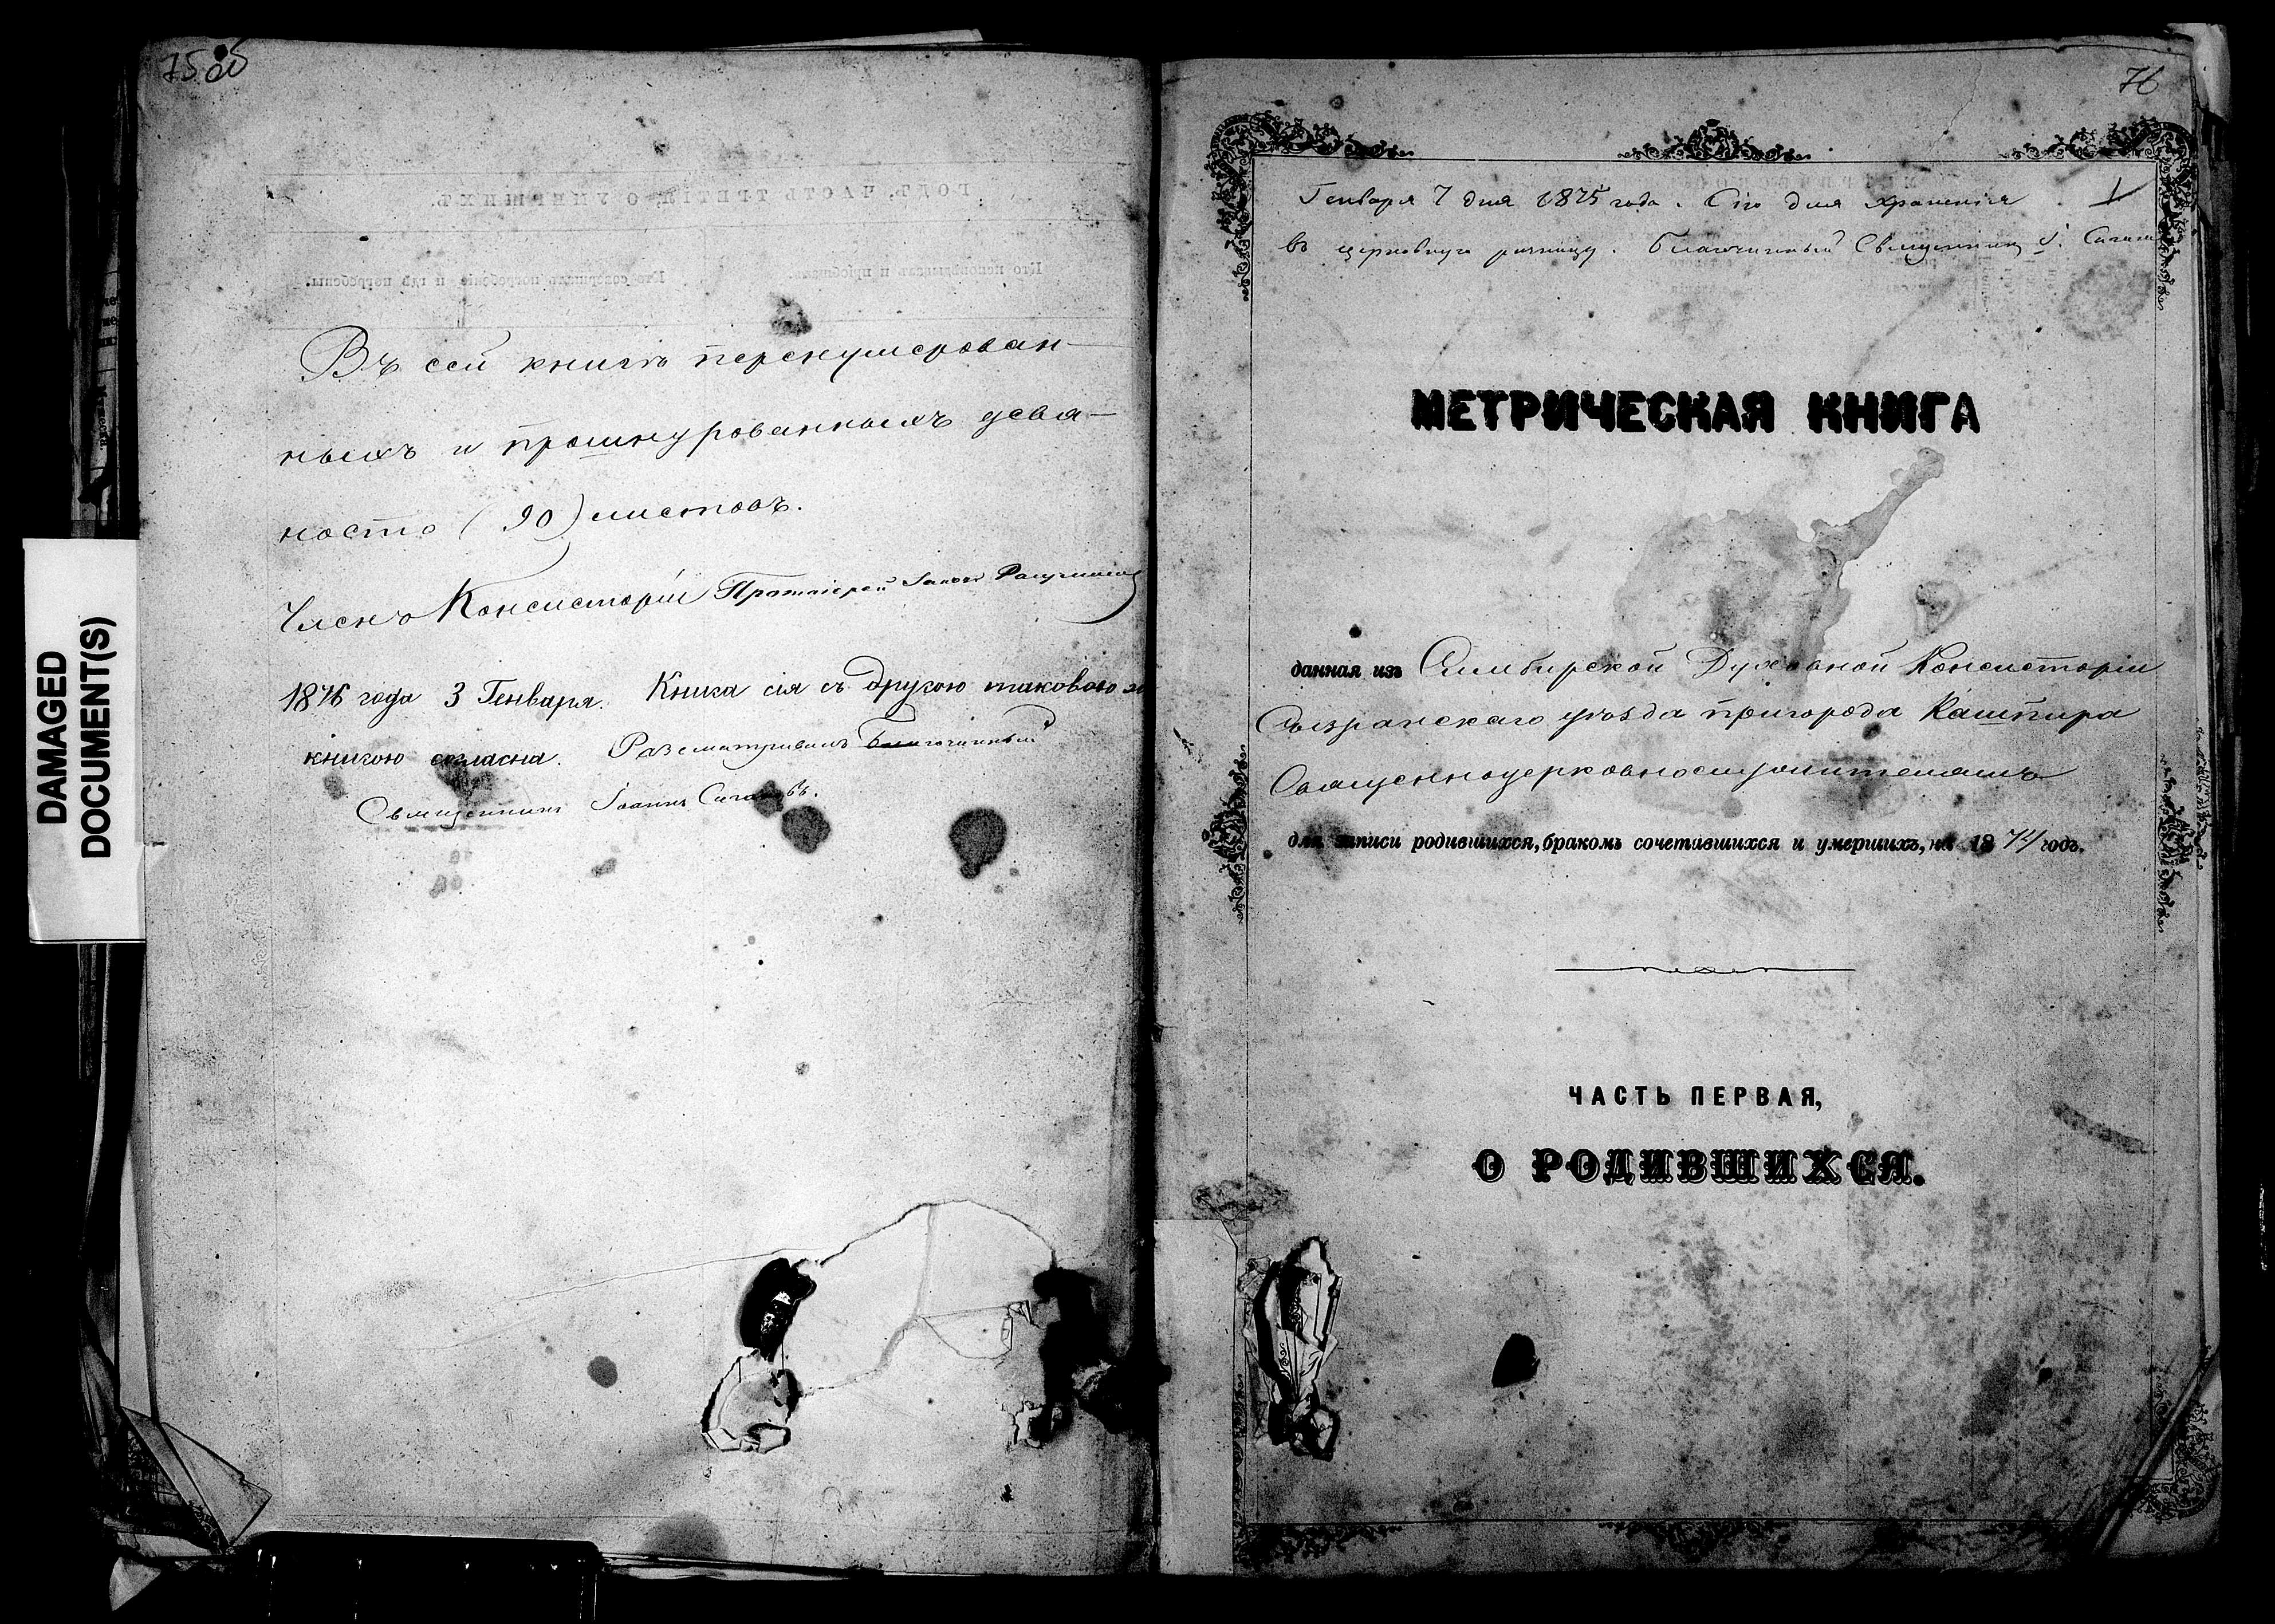 75 об
Въ сей книгѣ перенумерован-
ныхъ и прошнурованныхъ девя-
носто (90) листовъ.
Членъ Консисторіи Протоіерей
1876 года 3 Генваря. Книга сія съ другою таковою же
книгою согласна. Разсматривалъ Благочинный
Священникъ Іоаннъ
DAMAGED
DOCUMENT(S)
76
Генваря 7 дня 1875 года. Сію для храненія 1
въ церковную ризницу. Благочинный Священник І.
МЕТРИЧЕСКАЯ КНИГА
данная изъ Симбирской Духовной Консисторіи
Сызранскаго уѣзда пригорода Кашпира
Священноцерковнослужителямъ
для записи родившихся, бракомъ сочетавшихся и умершихъ, на 1874 годъ.
ЧАСТЬ ПЕРВАЯ,
О РОДИВШИХСЯ.